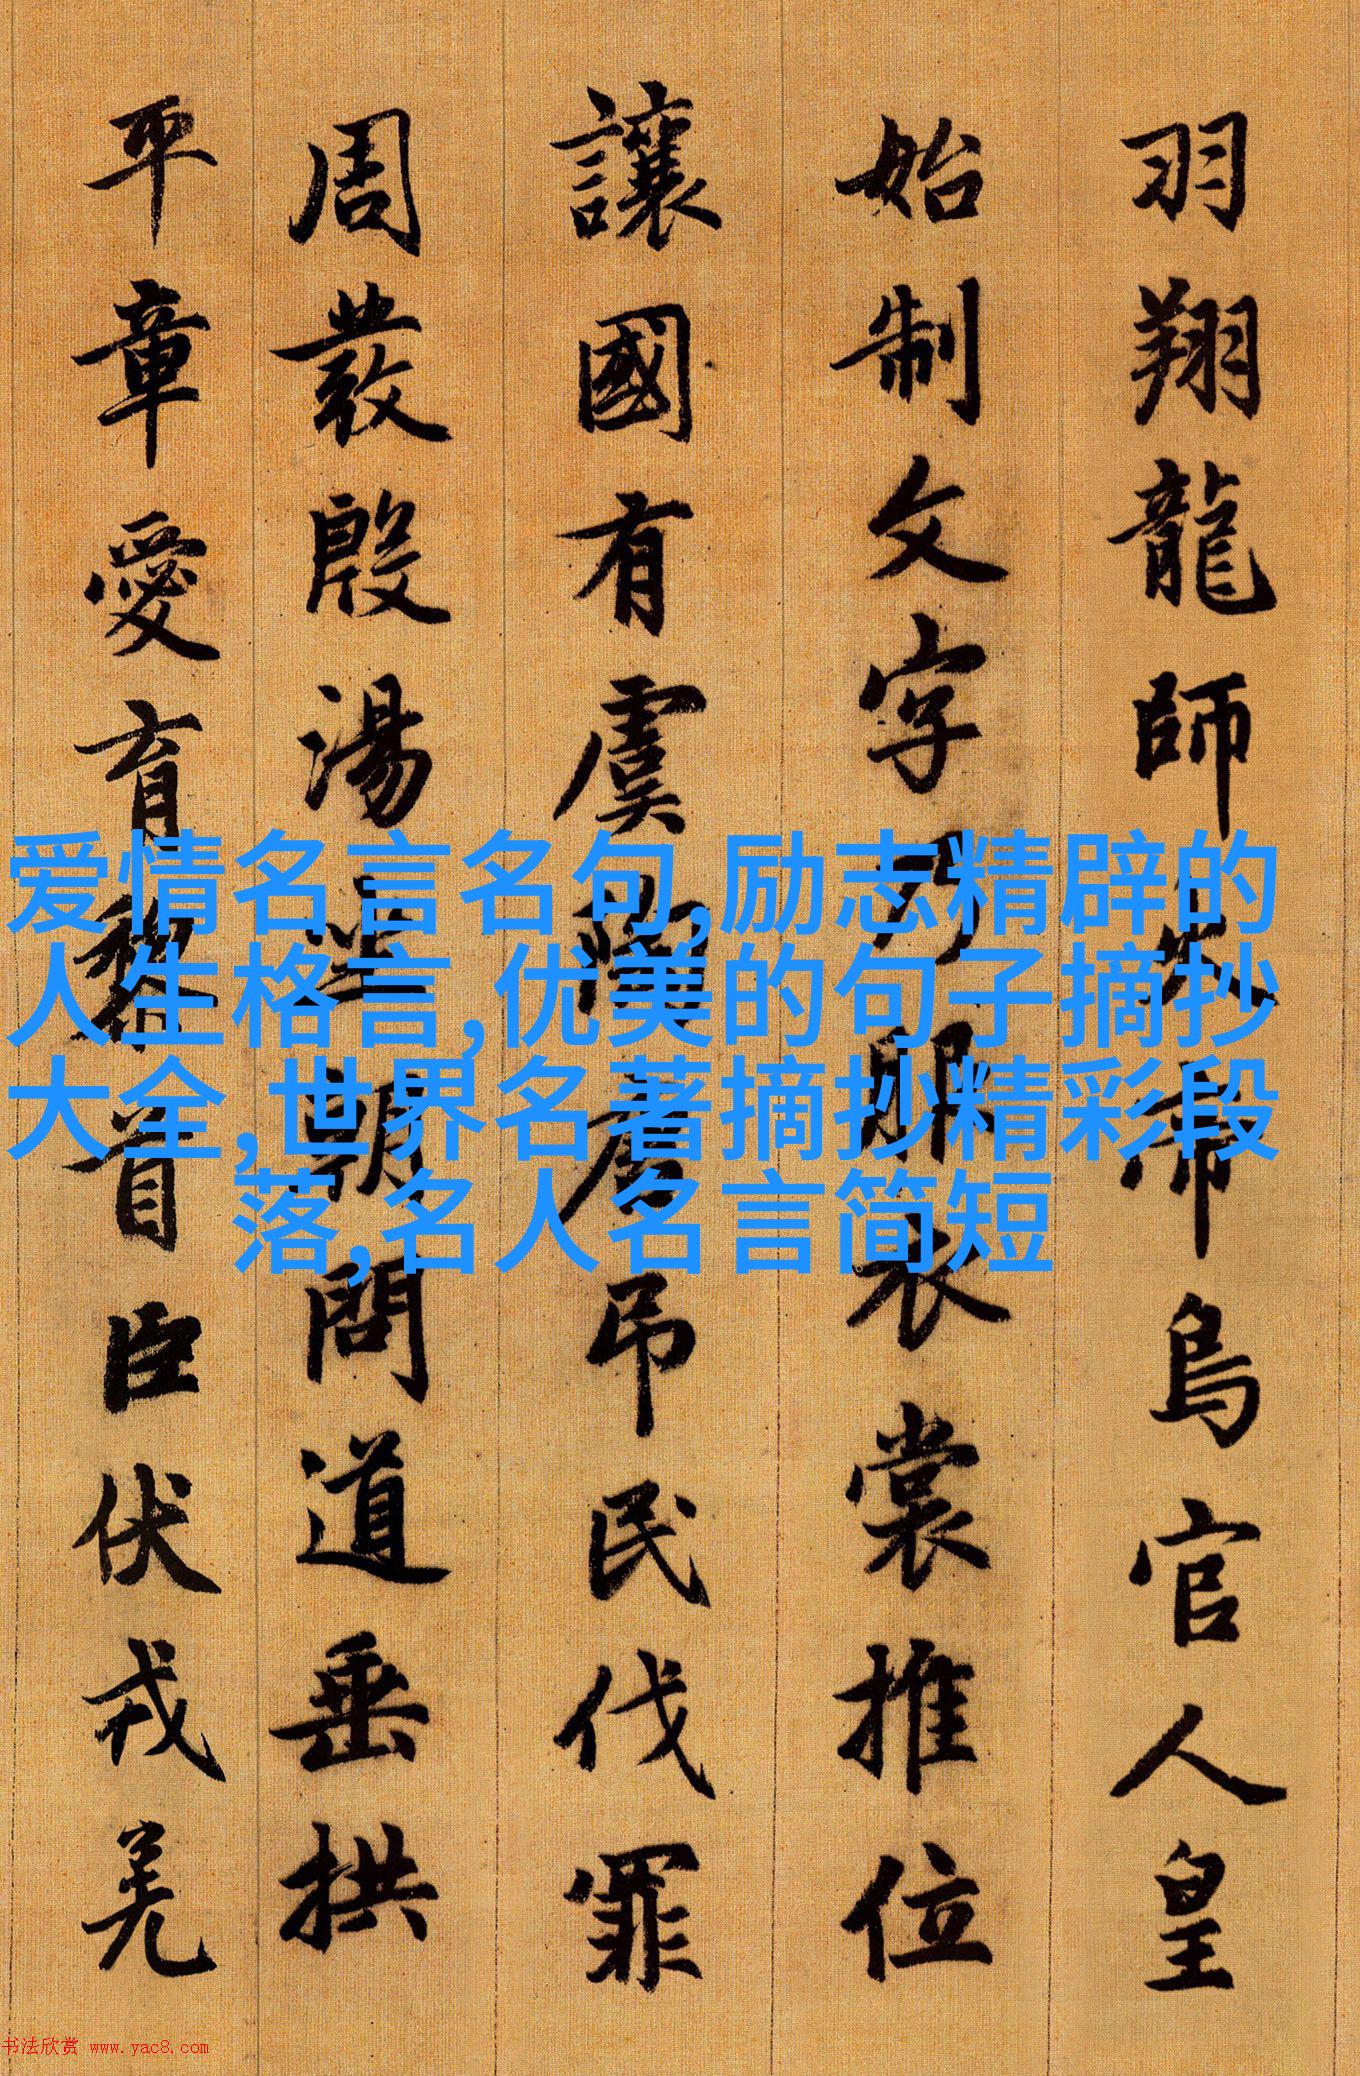 羽翔龍師火帝鳥官人皇
始制文字乃服衣裳推位
讓國有虞陶唐吊民伐罪
周發殷湯坐朝問道垂拱
平章愛育黎首臣伏戎羌
爱情名言名句,励志精辟的
人生格言,优美的句子摘抄
大全,世界名著摘抄精彩段
落,名人名言简短
书法欣赏 www.yac8.com